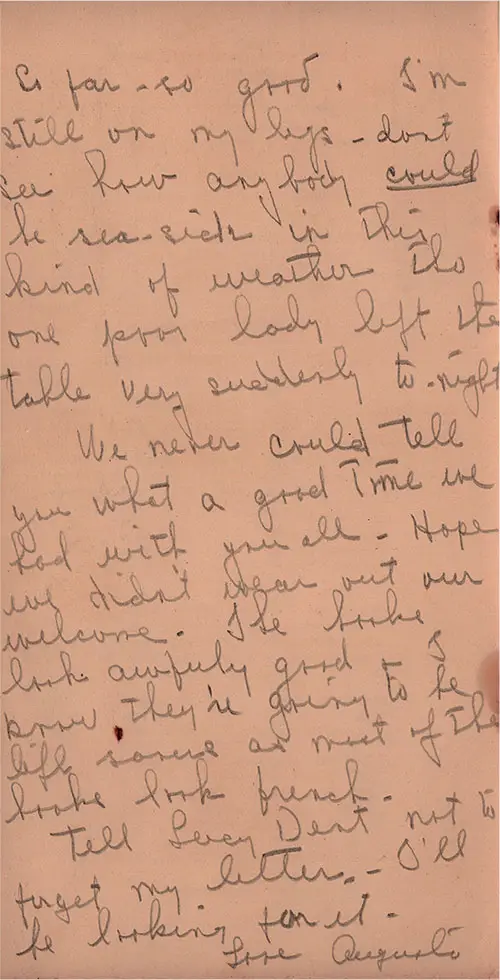 So far - so good. I'm
still on my legs - don't
see how anybody could
be sea-sick in this
kind of weather tho
one poor lady left the
table very suddenly to-night
We never could tell
you what a good time we
had with you all - Hope
we didn't wear out our
welcome. The books
look awfuly good & I
know they're going to be
life savers as most of the
books look french -
Tell Lucy Dent not to
forget my letter - I'll
be looking for it -
Love Augusta